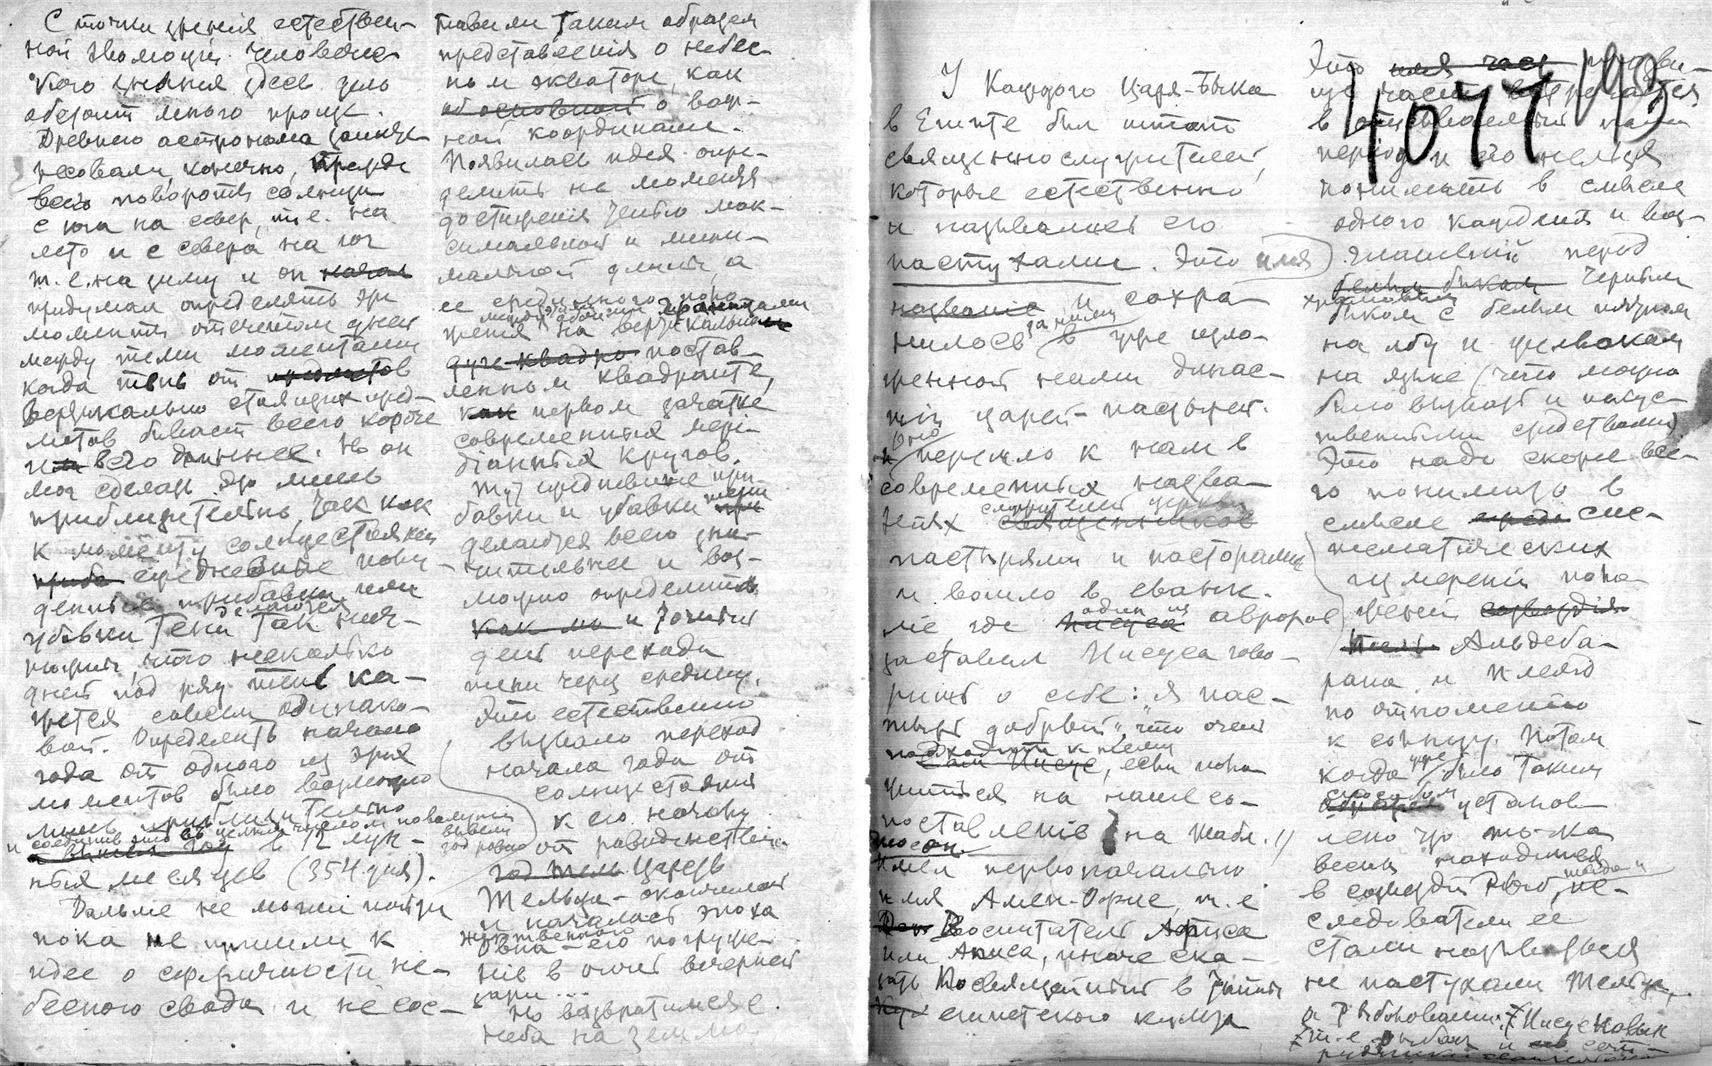 С точки зрения естествен-
ной эволюции человечес-
кого знания здесь дело
обстоит много проще.
Древнего астронома
интересовали, конечно, прежде
всего повороты солнца
с юга на север, т.е. на
лето и с севера на юг
т.е. на зиму и он начал
придумал определять эти
моменты отсчетом дней
между теми моментами
когда тень от предметов
вертикально стоящих пред-
метов бывает всего короче
и всего длиннее. Но он
мог сделать это лишь
приблизительно, так как
к моменту солнцестояний
ежедневные
прибавки или
убывки тени делаются так нич-
тожны, что несколько
дней под ряд тень ка-
жется совсем одинако-
вой. Определить начало
года от одного из этих
моментов было возможно
лишь приблизительно
и соединить это с целым числом полнолуний
в 12 лун-
ных месяцев (354 дня).
Дальше не могли пойти
пока не пришли к
идее о сферичности не-
бесного свода и не сос-
тавили таким образом
представления о небес-
ном экваторе, как
об основной о важ-
ной координате.
Появилась идея опре-
делить не моменты
достижения тенью мак-
симальной и мини-
мальной длины, а
ее срединного поло-
жения между этими обоими границами
на вертикально
дуге квадра постав-
ленном квадранте,
как первом зачатке
современных мери-
дианных кругов.
Тут ежедневные при-
бавки и убавки тени
делаются всего зна-
чительнее и воз-
можно определить
как мы и точный
день перехода
тени через средину.
Это естественно
вызвало переход
начала года от
солнцестояния
к его началу
от равноденствия.
год Тель Царств
Тельца окончилось
и началась эпоха
Овна - его погруже-
ние в огни вечерней
зари...
Но возвратимся с
неба на землю.
У каждого Царя-Быка
в Египте был штат
священнослужителей,
которые естественно
и назывались его
пастухами. Это имя
название и сохра-
нилось за ними в уже изло-
женной нами динас-
тии царей-пастырей.
Оно
и перешло к нам в
современных назва-
ниях служителей церкви
священников
пастырями и пасторами
и вошло в еванге-
лие где Иисуса один из авторов
заставил Иисуса гово-
рить о себе: "Я пас-
тырь добрый", что очень
подходит к нему
Сам Иисус, если поло-
житься на наше со-
поставление на табл. !!
Моисей
имел первоначально
имя Амен-Офис, т.е
Воспитатель Афиса
или Аписа, иначе ска-
зать Посвященный в Тайны
египетского культа
4077 1/13
Это имя час прозви-
ще часто встречается
в
период и его нельзя
понимать в смысле
одного каждения и воз-
глашений перед
белым быком черным
храмовым быком с белым пятном
на лбу и желваком
на языке (что можно
было вызвать и искус-
ственными средствами)
Это надо скорее все-
го понимать в
смысле сис-
тематических
измерений поло-
жений созвездия
Тель Альдеба-
рана и Плеяд
по отношению
к солнцу. Потом
когда уже было таким
способом
образом установ-
лено что точка
весны находится
в созвездии Рыб,
сле-
дователи ее
стали называться
не пастухами Тельца,
а Рыболовами.